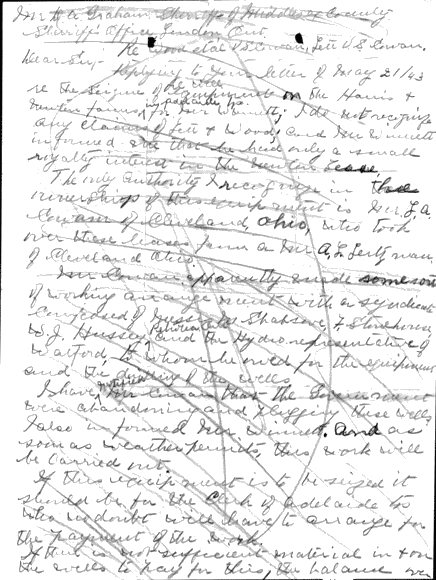 Mr H A Graham Sheriff of Middlesex County
Sheriffs Office London Ont.
Re Wood etal VS Cowan, Lett VS Cowan.
Dear Sir,-
Replying to your letter of May 21/43
re the Seizure of the Equipment on the Harris +
Hunter farms, in Adelaide Tp. for Mr Winnett; I do not recognize
any claims of Lett & Wood; and Mr Winnett
informed me that he had only a small
royalty interest in the Hunter Lease
The only authority I recognize in the
ownership of this equipment is Mr. L. A.
Cowan of Cleveland, Ohio, who took
over these leases from a Mr A. L.
of Cleveland Ohio.
Mr Cowan apparently made some sort
of working arrangement with a syndicate
composed of Messrs W. Shabsove, F. Stonehouse,
W. J. Hussey and the Hydro representative of
Watford, to whom he owed for the equipment
and the drilling of the wells.
I have notified Mr Cowan that the Government
were abandoning and plugging these wells,
I also informed Mr Winnett. and as
soon as weather permits, this work will
be carried out.
If this equipment is to be seized it
should be for the Clerk of Adelaide Tp
who no doubt will have to arrange for
the payment of the work.
If there is not sufficient material in + on
the wells to pay for this, the balance